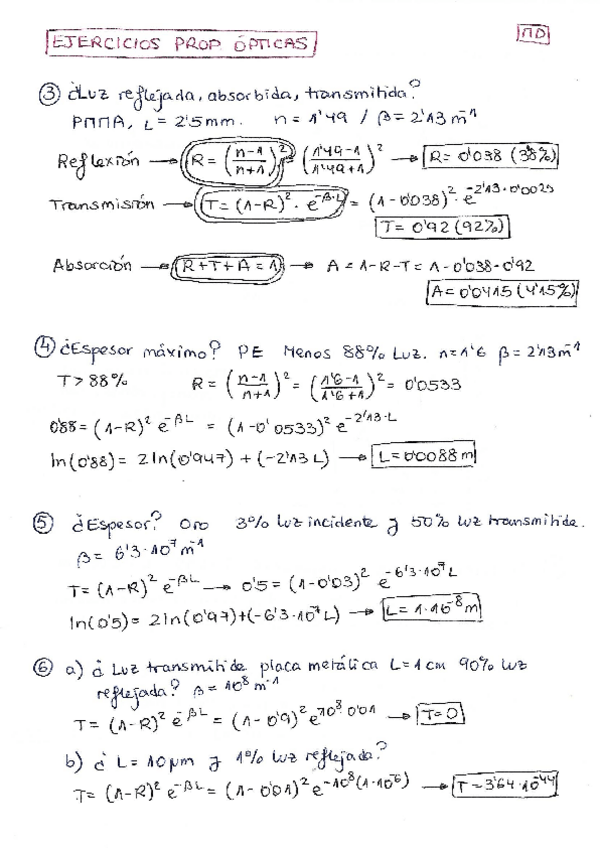 EJERCICIOS PROP ÓPTICAS
ΠD
③ ¿Luz reflejada, absorbida, transmitida?
PΠΠA, L = 2'5mm. n = 1'49 / β = 2'13 m⁻¹
Reflexión → R = (n-1/n+1)² (1'49-1/1'49+1)² → R = 0'038 (38%)
Transmisión → T = (1-R)² · e^-β·L = (1-0'038)² · e^-2'13·0'0025
T = 0'92 (92%)
Absorción → R+T+A = 1 → A = 1-R-T = 1-0'038-0'92
A = 0'0415 (4'15%)
④ ¿Espesor máximo? PE Menos 88% Luz. n=1'6 β = 2'13m⁻¹
T > 88% R = (n-1/n+1)² = (1'6-1/1'6+1)² = 0'0533
0'88 = (1-R)² e^-βL = (1-0'0533)² e^-2'13·L
ln(0'88) = 2ln(0'947) + (-2'13L) → L = 0'0088 m
⑤ ¿Espesor? Oro 3% luz incidente y 50% luz transmitida.
β = 6'3·10⁷ m⁻¹
T = (1-R)² e^-βL → 0'5 = (1-0'03)² e^-6'3·10⁷L
ln(0'5) = 2ln(0'97)+(-6'3·10⁷L) → L = 1·10⁻⁸ m
⑥ a) ¿Luz transmitida placa metálica L = 1 cm 90% luz
reflejada? β = 10⁸ m⁻¹
T = (1-R)² e^-βL = (1-0'9)² e^10⁸·0'01 → T = 0
b) ¿L = 10 μm y 1% luz reflejada?
T = (1-R)² e^-βL = (1-0'01)² e^-10⁸(1·10⁻⁶) → T = 3'64·10⁻⁴⁴